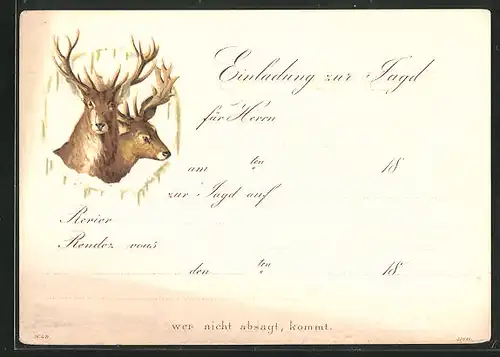 Einladung zur Jagd
für Herrn
am ten 18
zur Jagd auf
Revier
Rendez vous
den ten 18
wer nicht absagt, kommt.